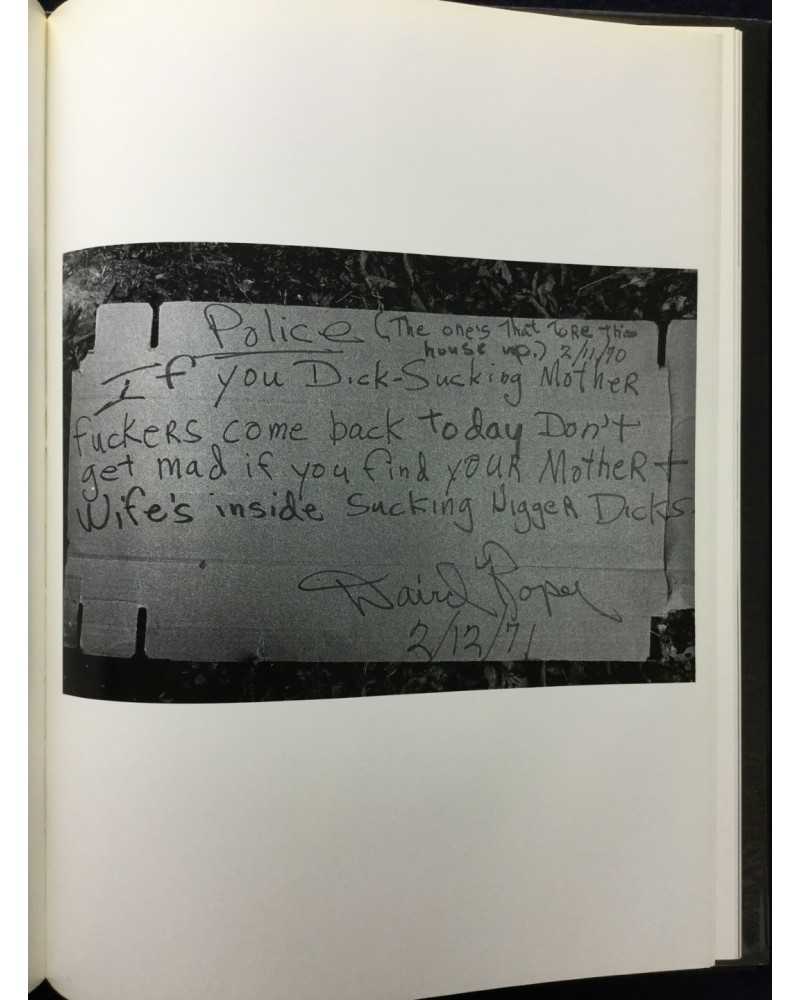 Police (The one's That Tore This
house up.) 2/11/70
If you Dick-Sucking Mother
fuckers come back today Don't
get mad if you find your Mother +
Wife's inside Sucking Nigger Dicks.
David Roper
2/12/71